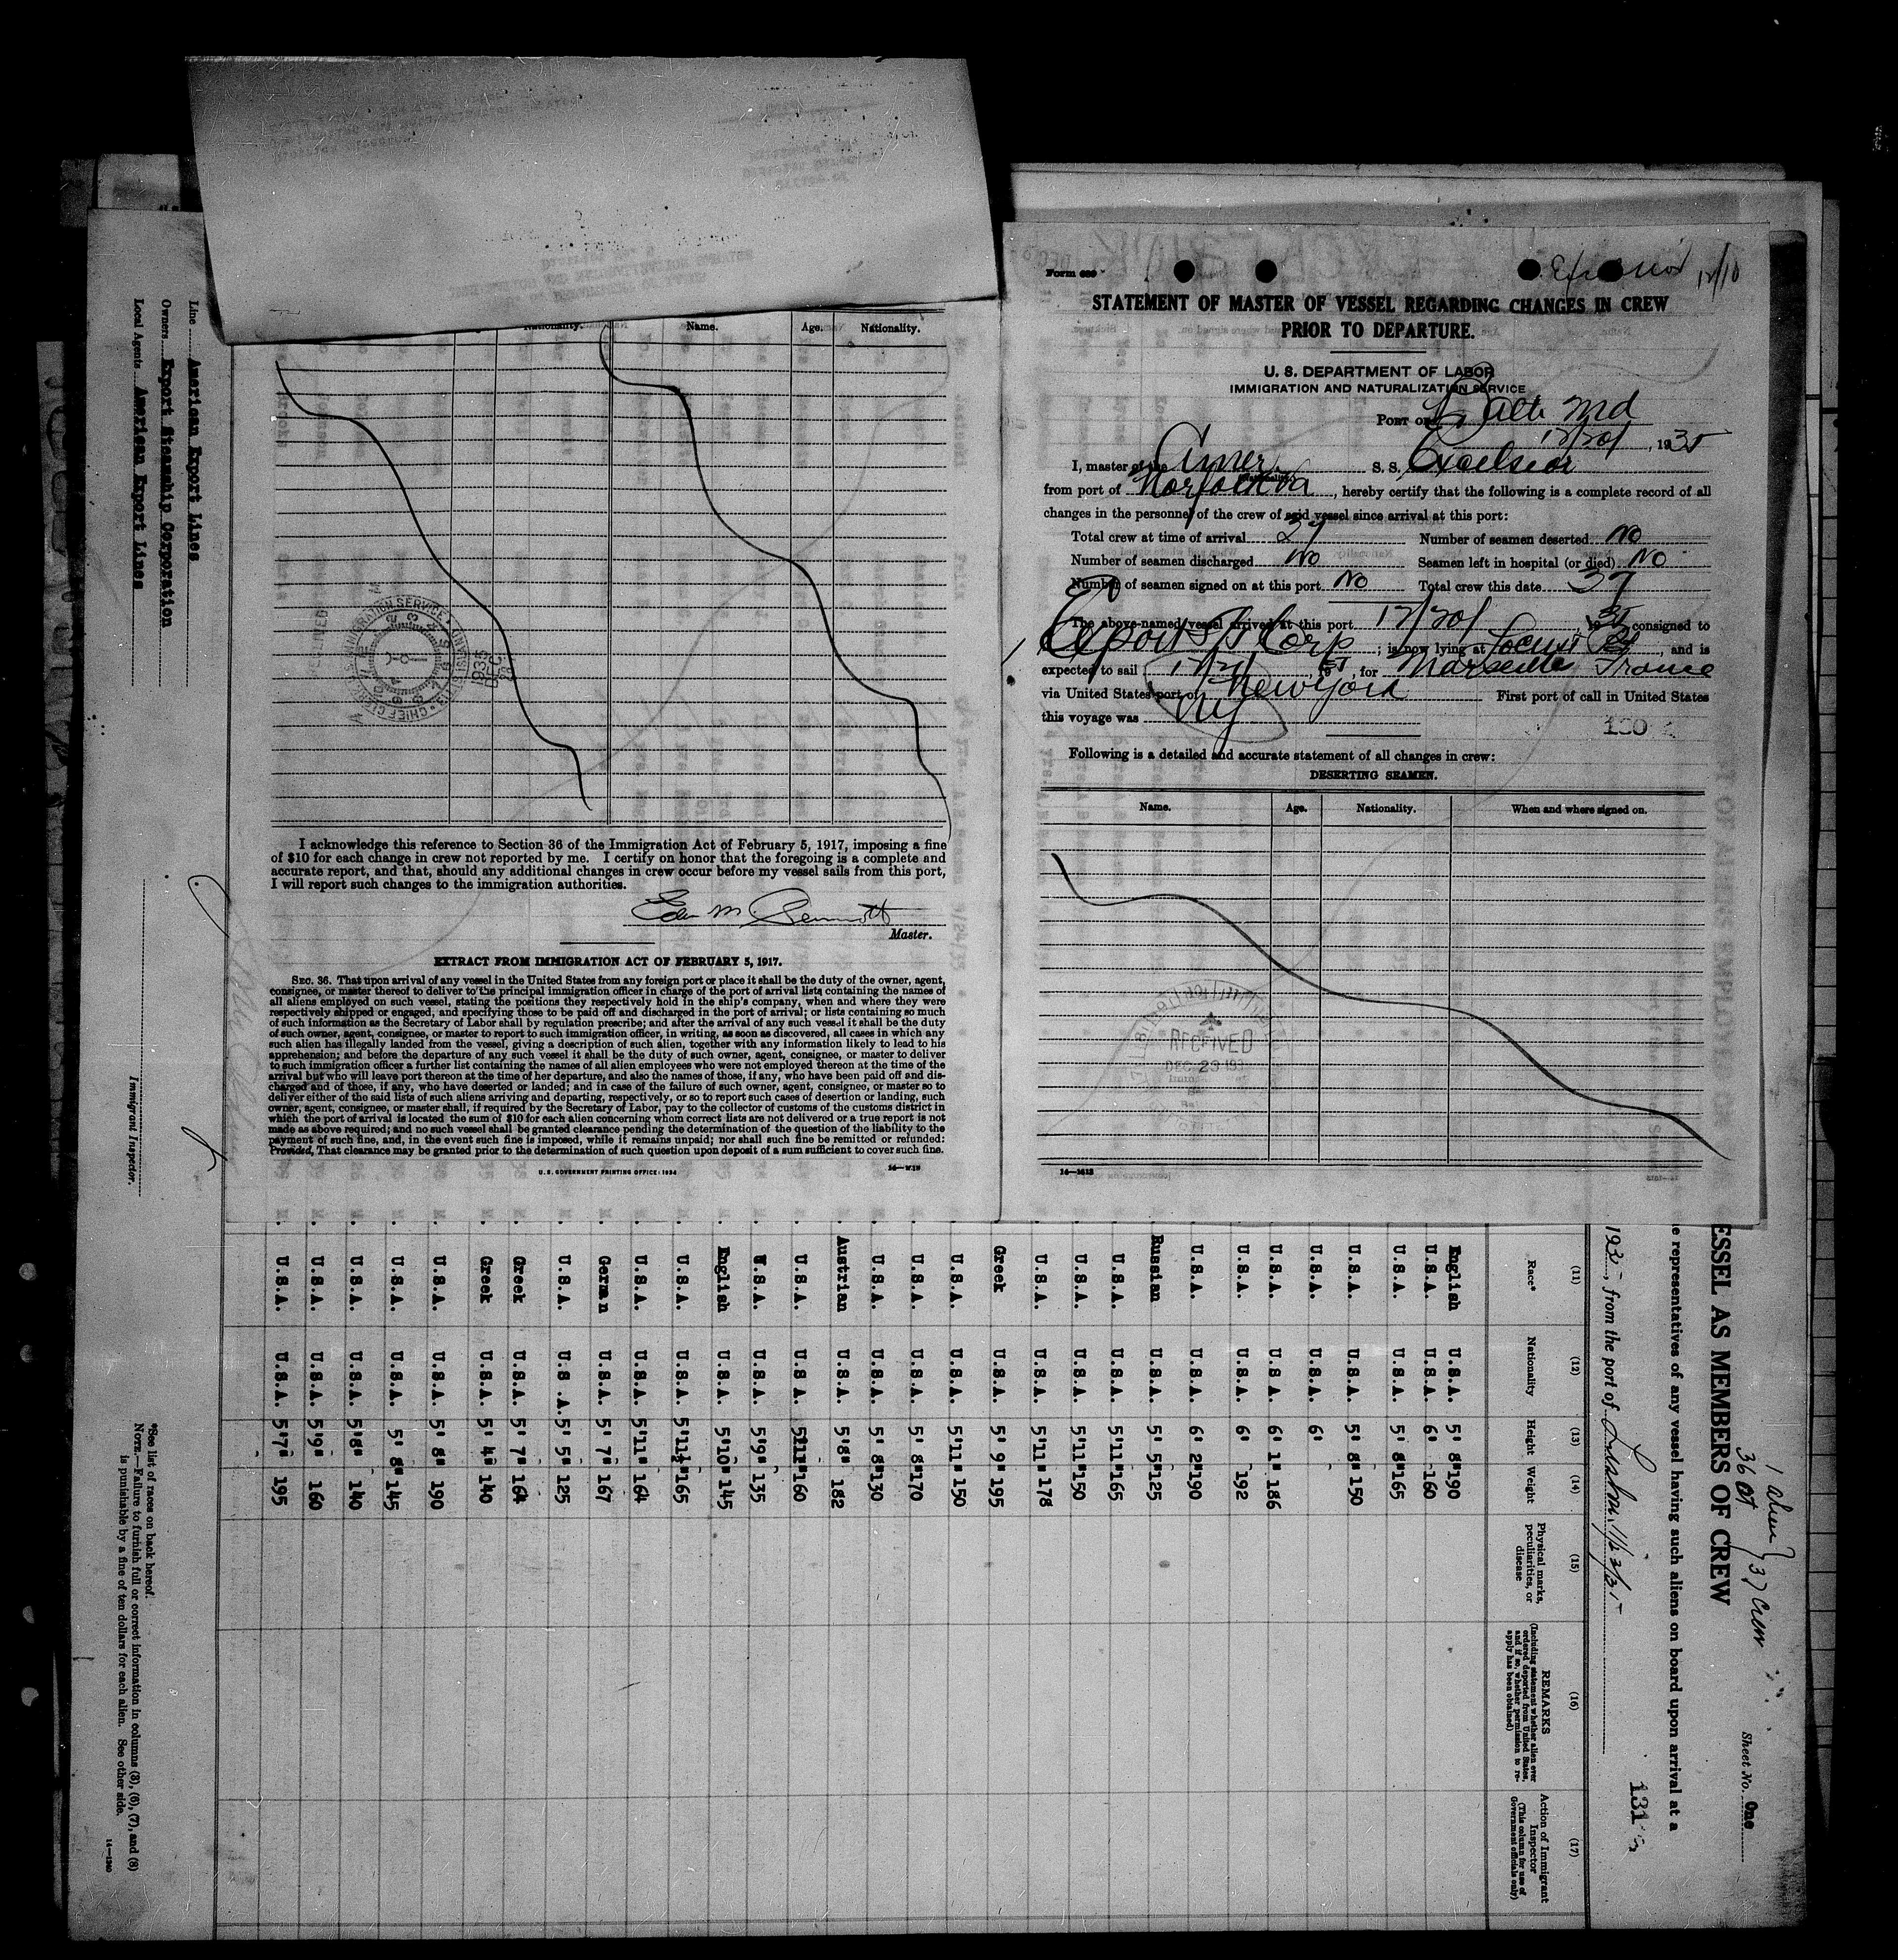 Form 689
Excelsior 12/10
STATEMENT OF MASTER OF VESSEL REGARDING CHANGES IN CREW
PRIOR TO DEPARTURE.
U. S. DEPARTMENT OF LABOR
IMMIGRATION AND NATURALIZATION SERVICE
PORT OF Balto Md
12/20/, 1935
I, master of the Amer. S. S. Excelsior
from port of Norfolk Va, hereby certify that the following is a complete record of all
changes in the personnel of the crew of said vessel since arrival at this port:
Total crew at time of arrival 37 Number of seamen deserted No
Number of seamen discharged No Seamen left in hospital (or died) No
Number of seamen signed on at this port No Total crew this date 37
The above-named vessel arrived at this port 12/20/, 1935 consigned to
Export SS Corp; is now lying at Locust Pt, and is
expected to sail 12/21, 1935, for Marseille France
via United States port of New York First port of call in United States
this voyage was NY
130
Following is a detailed and accurate statement of all changes in crew:
DESERTING SEAMEN.
Name. Age. Nationality. When and where signed on.
RECEIVED
DEC 23 193
14—1613
Nationality. Name. Age. Nationality.
IMMIGRATION SERVICE
CHIEF CLERK
1935
DEC
I acknowledge this reference to Section 36 of the Immigration Act of February 5, 1917, imposing a fine
of $10 for each change in crew not reported by me. I certify on honor that the foregoing is a complete and
accurate report, and that, should any additional changes in crew occur before my vessel sails from this port,
I will report such changes to the immigration authorities.
Master.
EXTRACT FROM IMMIGRATION ACT OF FEBRUARY 5, 1917.
SEC. 36. That upon arrival of any vessel in the United States from any foreign port or place it shall be the duty of the owner, agent,
consignee, or master thereof to deliver to the principal immigration officer in charge of the port of arrival lists containing the names of
all aliens employed on such vessel, stating the positions they respectively hold in the ship's company, when and where they were
respectively shipped or engaged, and specifying those to be paid off and discharged in the port of arrival; or lists containing so much
of such information as the Secretary of Labor shall by regulation prescribe; and after the arrival of any such vessel it shall be the duty
of such owner, agent, consignee, or master to report to such immigration officer, in writing, as soon as discovered, all cases in which any
such alien has illegally landed from the vessel, giving a description of such alien, together with any information likely to lead to his
apprehension; and before the departure of any such vessel it shall be the duty of such owner, agent, consignee, or master to deliver
to such immigration officer a further list containing the names of all alien employees who were not employed thereon at the time of the
arrival but who will leave port thereon at the time of her departure, and also the names of those, if any, who have been paid off and dis-
charged and of those, if any, who have deserted or landed; and in case of the failure of such owner, agent, consignee, or master so to
deliver either of the said lists of such aliens arriving and departing, respectively, or so to report such cases of desertion or landing, such
owner, agent, consignee, or master shall, if required by the Secretary of Labor, pay to the collector of customs of the customs district in
which the port of arrival is located the sum of $10 for each alien concerning whom correct lists are not delivered or a true report is not
made as above required; and no such vessel shall be granted clearance pending the determination of the question of the liability to the
payment of such fine, and, in the event such fine is imposed, while it remains unpaid; nor shall such fine be remitted or refunded:
Provided, That clearance may be granted prior to the determination of such question upon deposit of a sum sufficient to cover such fine.
U. S. GOVERNMENT PRINTING OFFICE: 1934
1 alien
36 } 37 Crew
Sheet No. One
ESSEL AS MEMBERS OF CREW
e representatives of any vessel having such aliens on board upon arrival at a
1935, from the port of
131
(11) (12) (13) (14) (15) (16) (17)
Race* Nationality Height Weight Physical marks, peculiarities, or disease REMARKS (Including statement whether alien ever ordered deported from United States, and if so, whether permission to re-apply has been obtained) Action of Immigrant Inspector (This column for use of Government officials only)
English U.S.A. 5' 8" 190
U.S.A. U.S.A. 6' 160
U.S.A. U.S.A. 5' 8" 165
U.S.A. U.S.A. 5' 8" 150
U.S.A. U.S.A. 6'
U.S.A U.S A. 6' 1" 186
U.S.A. U.S.A. 6' 192
U.S.A. U.S.A. 6' 2" 190
Russian U.S.A. 5' 5" 125
U.S.A. U.S.A. 5'11" 165
U.S.A. U.S.A. 5'11" 150
U.S.A. U.S.A. 5'11" 178
Greek U.S.A. 5' 9" 195
U.S.A. U.S.A. 5'11" 150
U.S.A. U.S.A. 5' 8" 170
U.S.A. U.S.A. 5' 8" 130
Austrian U.S.A. 5'8" 182
U.S.A. U.S A. 5'11" 160
U.S.A. U.S.A. 5'9" 135
English U.S.A. 5'10" 145
U.S.A. U.S.A. 5'11½" 165
U.S.A. U.S.A. 5'11" 164
German U.S.A. 5' 7" 167
U.S.A. U.S .A. 5' 5" 125
Greek U.S.A. 5' 7" 164
Greek U.S.A. 5' 4" 140
U.S.A. U.S.A. 5' 8" 190
U.S.A. U.S.A. 5' 8" 145
U.S.A. U.S.A. 5'8" 140
U.S.A. U.S.A. 5'9" 160
U.S.A. U.S.A. 5'7" 195
Line American Export Lines
Owners Export Steamship Corporation
Local Agents American Export Lines
Immigrant Inspector.
*See list of races on back hereof.
NOTE.—Failure to furnish full or correct information in columns (3), (6), (7), and (8)
is punishable by a fine of ten dollars for each alien. See other side.
14—1240